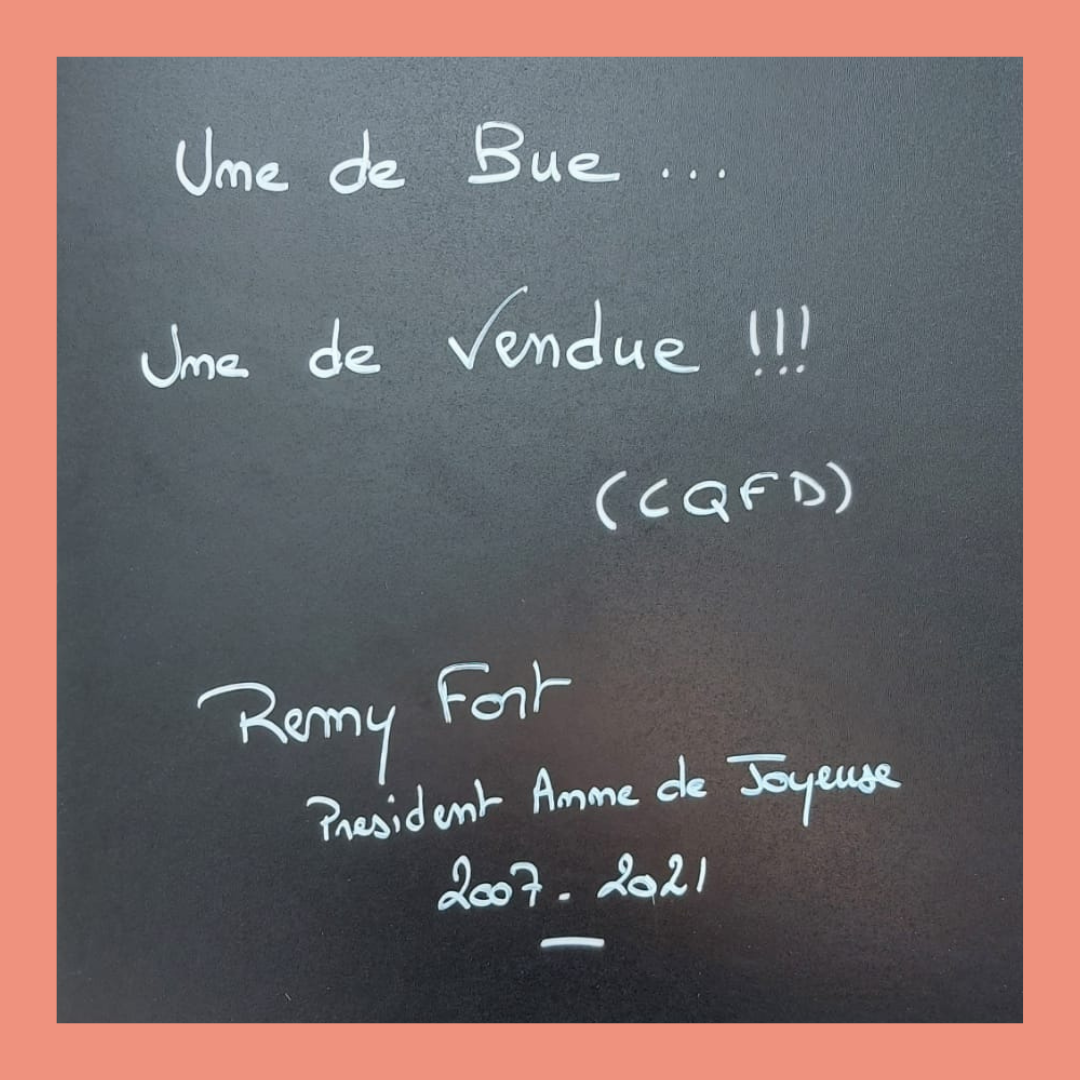 Une de Bue ...
Une de Vendue !!!
(CQFD)
Remy Fort
President Anne de Joyeuse
2007 - 2021